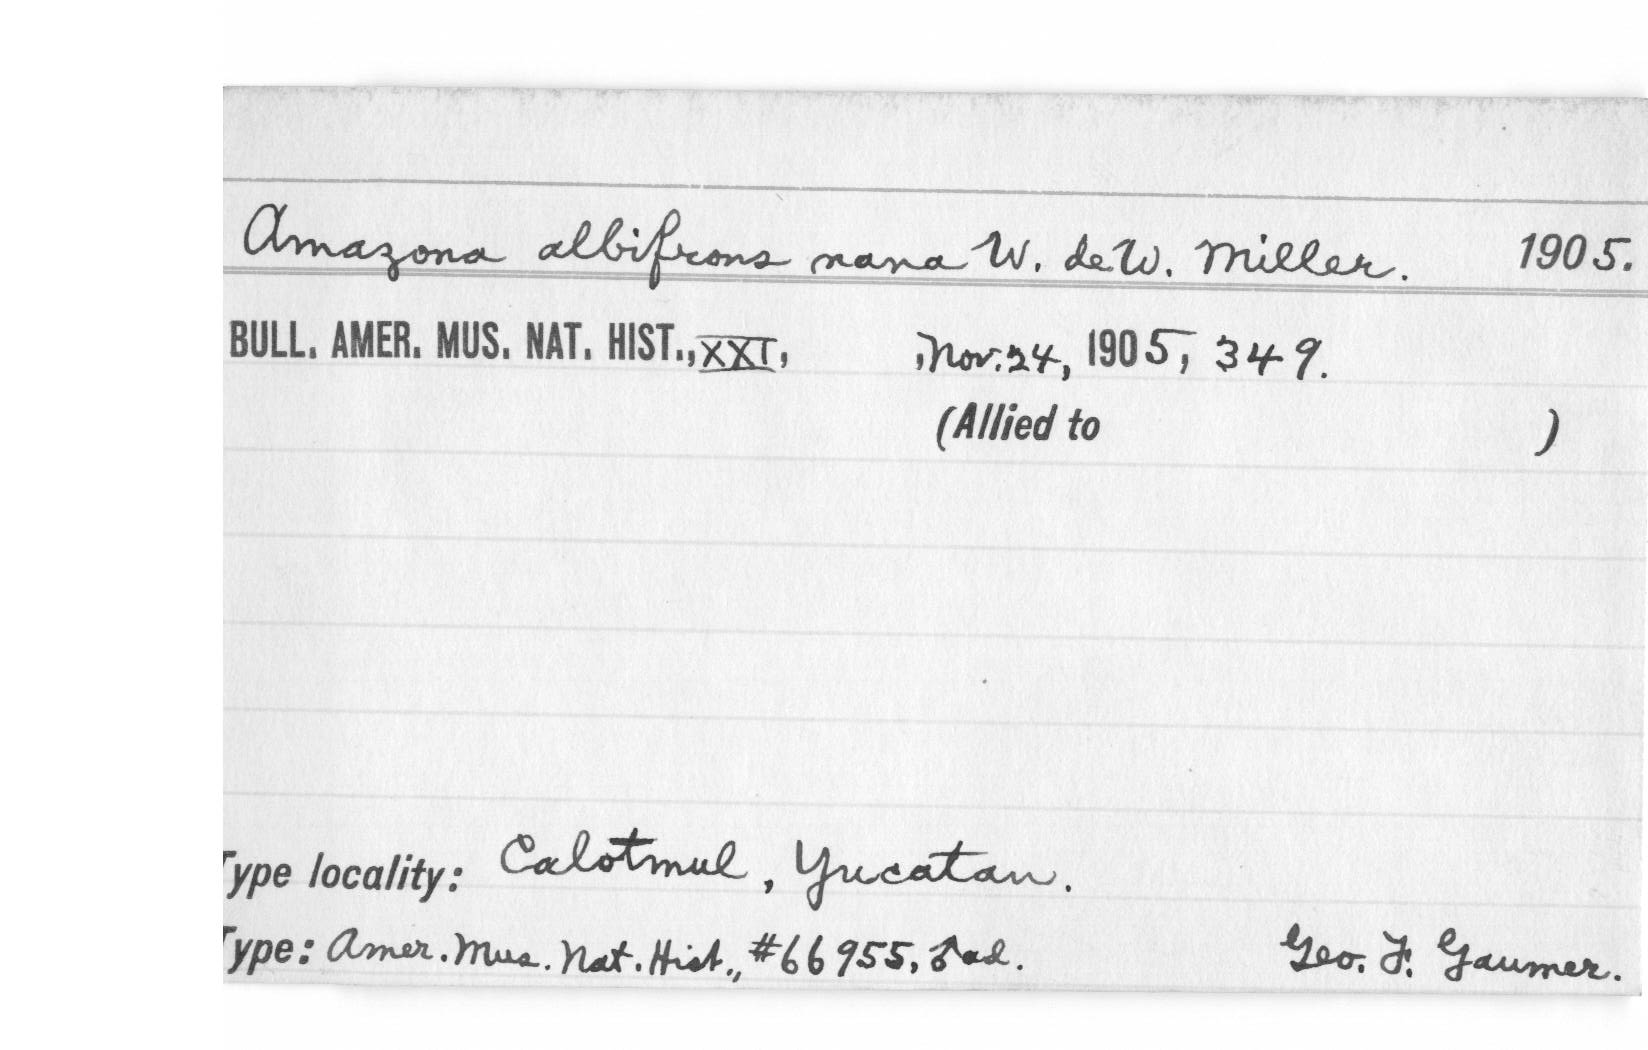 Amazona albifrons nana W. deW. Miller. 1905.
BULL. AMER. MUS. NAT. HIST., XXI, , Nov. 24, 1905, 349.
(Allied to )
Type locality: Calotmul, Yucatan.
Type: Amer. Mus. Nat. Hist., #66955, ♂ ad. Geo. F. Gaumer.